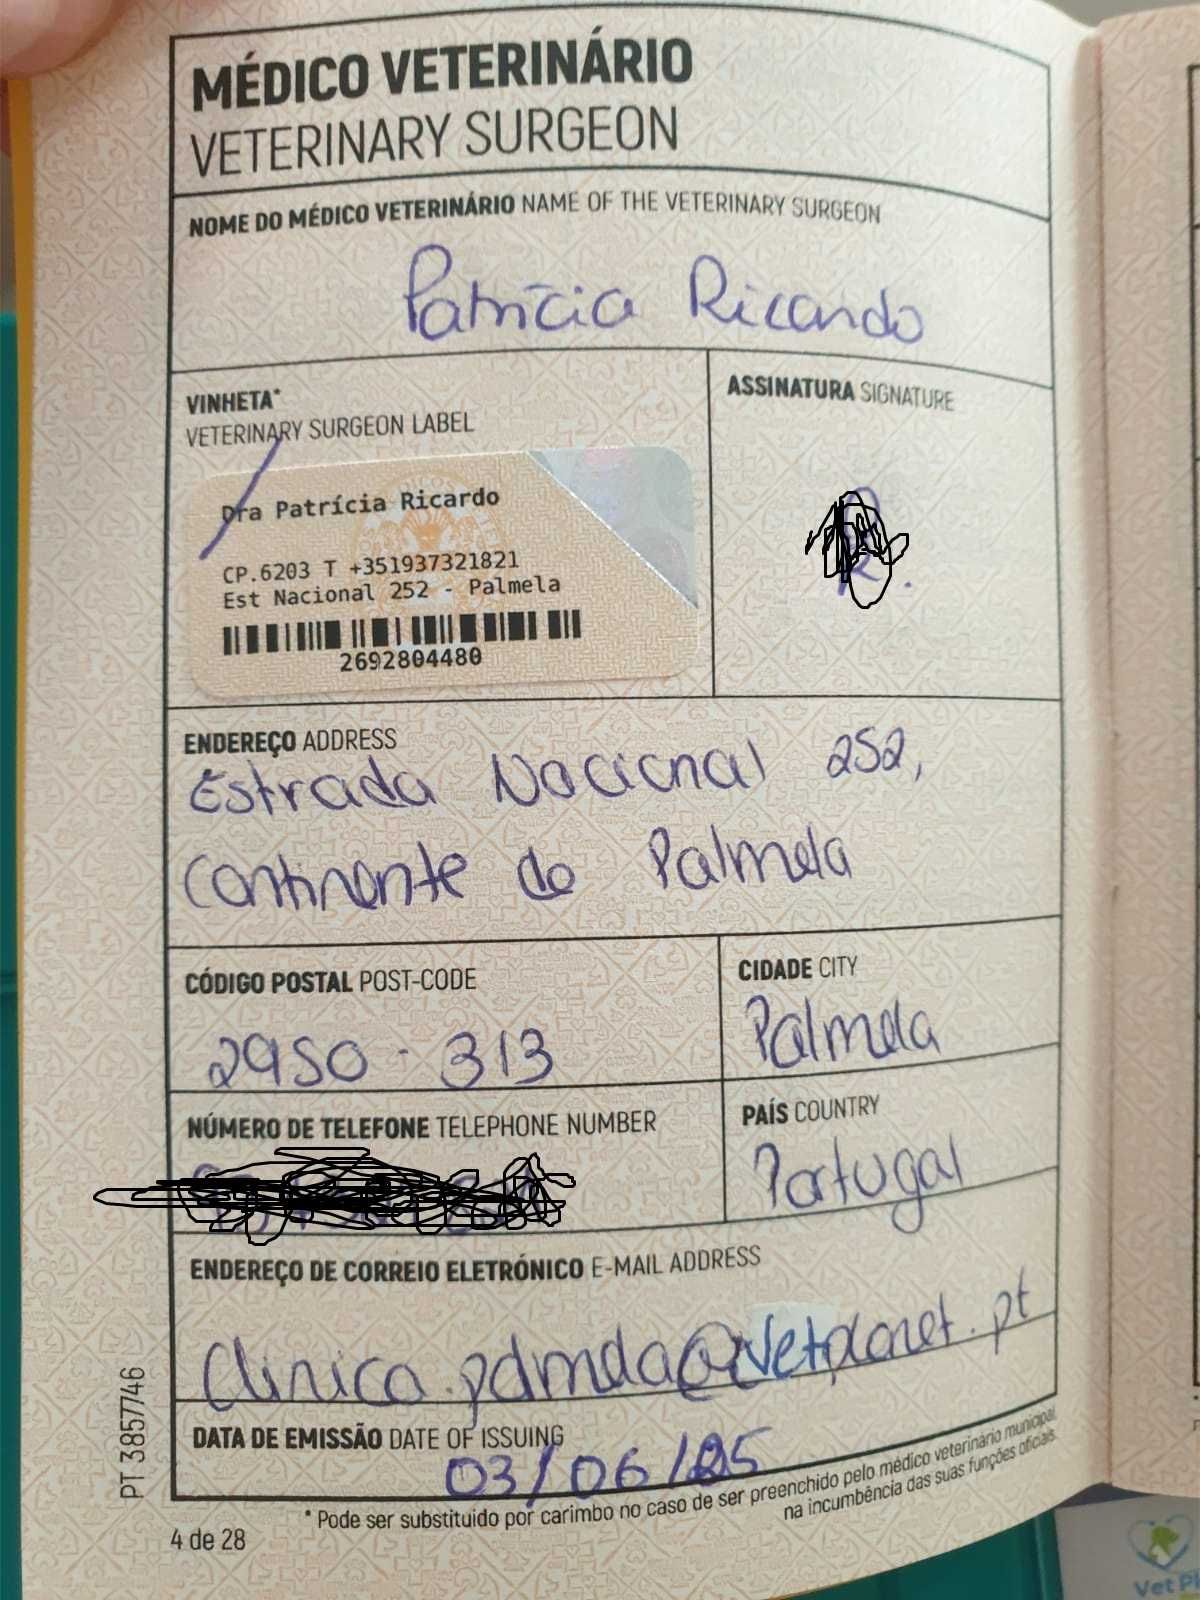 MÉDICO VETERINÁRIO
VETERINARY SURGEON
NOME DO MÉDICO VETERINÁRIO NAME OF THE VETERINARY SURGEON
Patrícia Ricardo
VINHETA*
VETERINARY SURGEON LABEL
Dra Patrícia Ricardo
CP.6203 T +351937321821
Est Nacional 252 - Palmela
2692804480
ASSINATURA SIGNATURE
ENDEREÇO ADDRESS
Estrada Nacional 252,
Continente de Palmela
CÓDIGO POSTAL POST-CODE
2950-313
CIDADE CITY
Palmela
NÚMERO DE TELEFONE TELEPHONE NUMBER
PAÍS COUNTRY
Portugal
ENDEREÇO DE CORREIO ELETRÓNICO E-MAIL ADDRESS
Clinica.palmela@vetplanet.pt
DATA DE EMISSÃO DATE OF ISSUING
03/06/25
* Pode ser substituido por carimbo no caso de ser preenchido pelo médico veterinário municipal
na incumbência das suas funções oficiais.
PT 3857746
4 de 28
Vet Pl